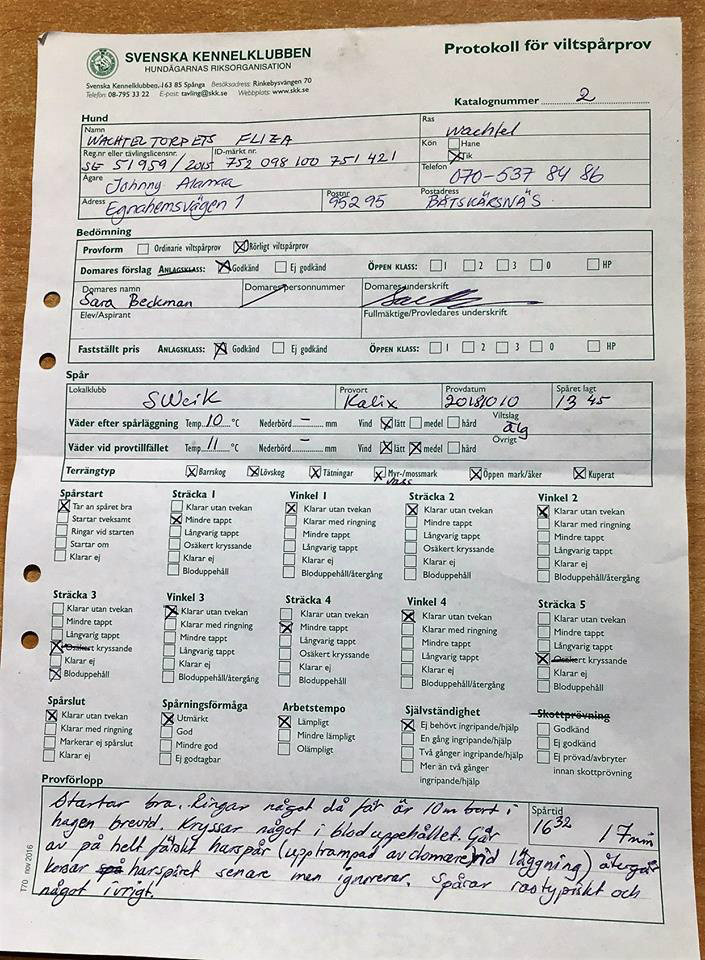 SVENSKA KENNELKLUBBEN
HUNDÄGARNAS RIKSORGANISATION
Svenska Kennelklubben, 163 85 Spånga Besöksadress: Rinkebysvängen 70
Telefon: 08-795 33 22 E-post: tavling@skk.se Webbplats: www.skk.se
Protokoll för viltspårprov
Katalognummer 2
Hund
Namn
WACHTELTORPETS ELIZA
Ras
Wachtel
Reg.nr eller tävlingslicensnr. ID-märkt nr.
SE 51959/2015 752 098 100 751 421
Kön Hane
Tik
Ägare
Johnny Alamaa
Telefon
070-537 84 86
Adress Postnr Postadress
Egnahemsvägen 1 95295 BÅTSKÄRSNÄS
Bedömning
Provform Ordinarie viltspårprov Rörligt viltspårprov
Domares förslag ANLAGSKLASS: Godkänd Ej godkänd ÖPPEN KLASS: 1 2 3 0 HP
Domares namn Domares personnummer Domares underskrift
Sara Beckman
Elev/Aspirant Fullmäktige/Provledares underskrift
Fastställt pris ANLAGSKLASS: Godkänd Ej godkänd ÖPPEN KLASS: 1 2 3 0 HP
Spår
Lokalklubb Provort Provdatum Spåret lagt
SWeik Kalix 20181010 13 45
Väder efter spårläggning Temp. 10 °C Nederbörd – mm Vind lätt medel hård Viltslag
älg
Väder vid provtillfället Temp. 11 °C Nederbörd – mm Vind lätt medel hård Övrigt
Terrängtyp Barrskog Lövskog Tätningar Myr-/mossmark Öppen mark/åker Kuperat
vass
Spårstart
Tar an spåret bra
Startar tveksamt
Ringar vid starten
Startar om
Klarar ej
Sträcka 1
Klarar utan tvekan
Mindre tappt
Långvarig tappt
Osäkert kryssande
Klarar ej
Bloduppehåll
Vinkel 1
Klarar utan tvekan
Klarar med ringning
Mindre tappt
Långvarig tappt
Klarar ej
Bloduppehåll/återgång
Sträcka 2
Klarar utan tvekan
Mindre tappt
Långvarig tappt
Osäkert kryssande
Klarar ej
Bloduppehåll
Vinkel 2
Klarar utan tvekan
Klarar med ringning
Mindre tappt
Långvarig tappt
Klarar ej
Bloduppehåll/återgång
Sträcka 3
Klarar utan tvekan
Mindre tappt
Långvarig tappt
Osäkert kryssande
Klarar ej
Bloduppehåll
Vinkel 3
Klarar utan tvekan
Klarar med ringning
Mindre tappt
Långvarig tappt
Klarar ej
Bloduppehåll/återgång
Sträcka 4
Klarar utan tvekan
Mindre tappt
Långvarig tappt
Osäkert kryssande
Klarar ej
Bloduppehåll
Vinkel 4
Klarar utan tvekan
Klarar med ringning
Mindre tappt
Långvarig tappt
Klarar ej
Bloduppehåll/återgång
Sträcka 5
Klarar utan tvekan
Mindre tappt
Långvarig tappt
Osäkert kryssande
Klarar ej
Bloduppehåll
Spårslut
Klarar utan tvekan
Klarar med ringning
Markerar ej spårslut
Klarar ej
Spårningsförmåga
Utmärkt
God
Mindre god
Ej godtagbar
Arbetstempo
Lämpligt
Mindre lämpligt
Olämpligt
Självständighet
Ej behövt ingripande/hjälp
En gång ingripande/hjälp
Två gånger ingripande/hjälp
Mer än två gånger
ingripande/hjälp
Skottprövning
Godkänd
Ej godkänd
Ej prövad/avbryter
innan skottprövning
Provförlopp
Startar bra. Ringar något då får är 10m bort i
hagen brevid. Kryssar något i bloduppehållet. Går
av på helt färskt harspår (upptrampad av domare vid läggning) återgår
korsar spå harspåret senare men ignorerar. Spårar rastypiskt och
något ivrigt.
Spårtid
16 32 17 min
T70 nov 2016